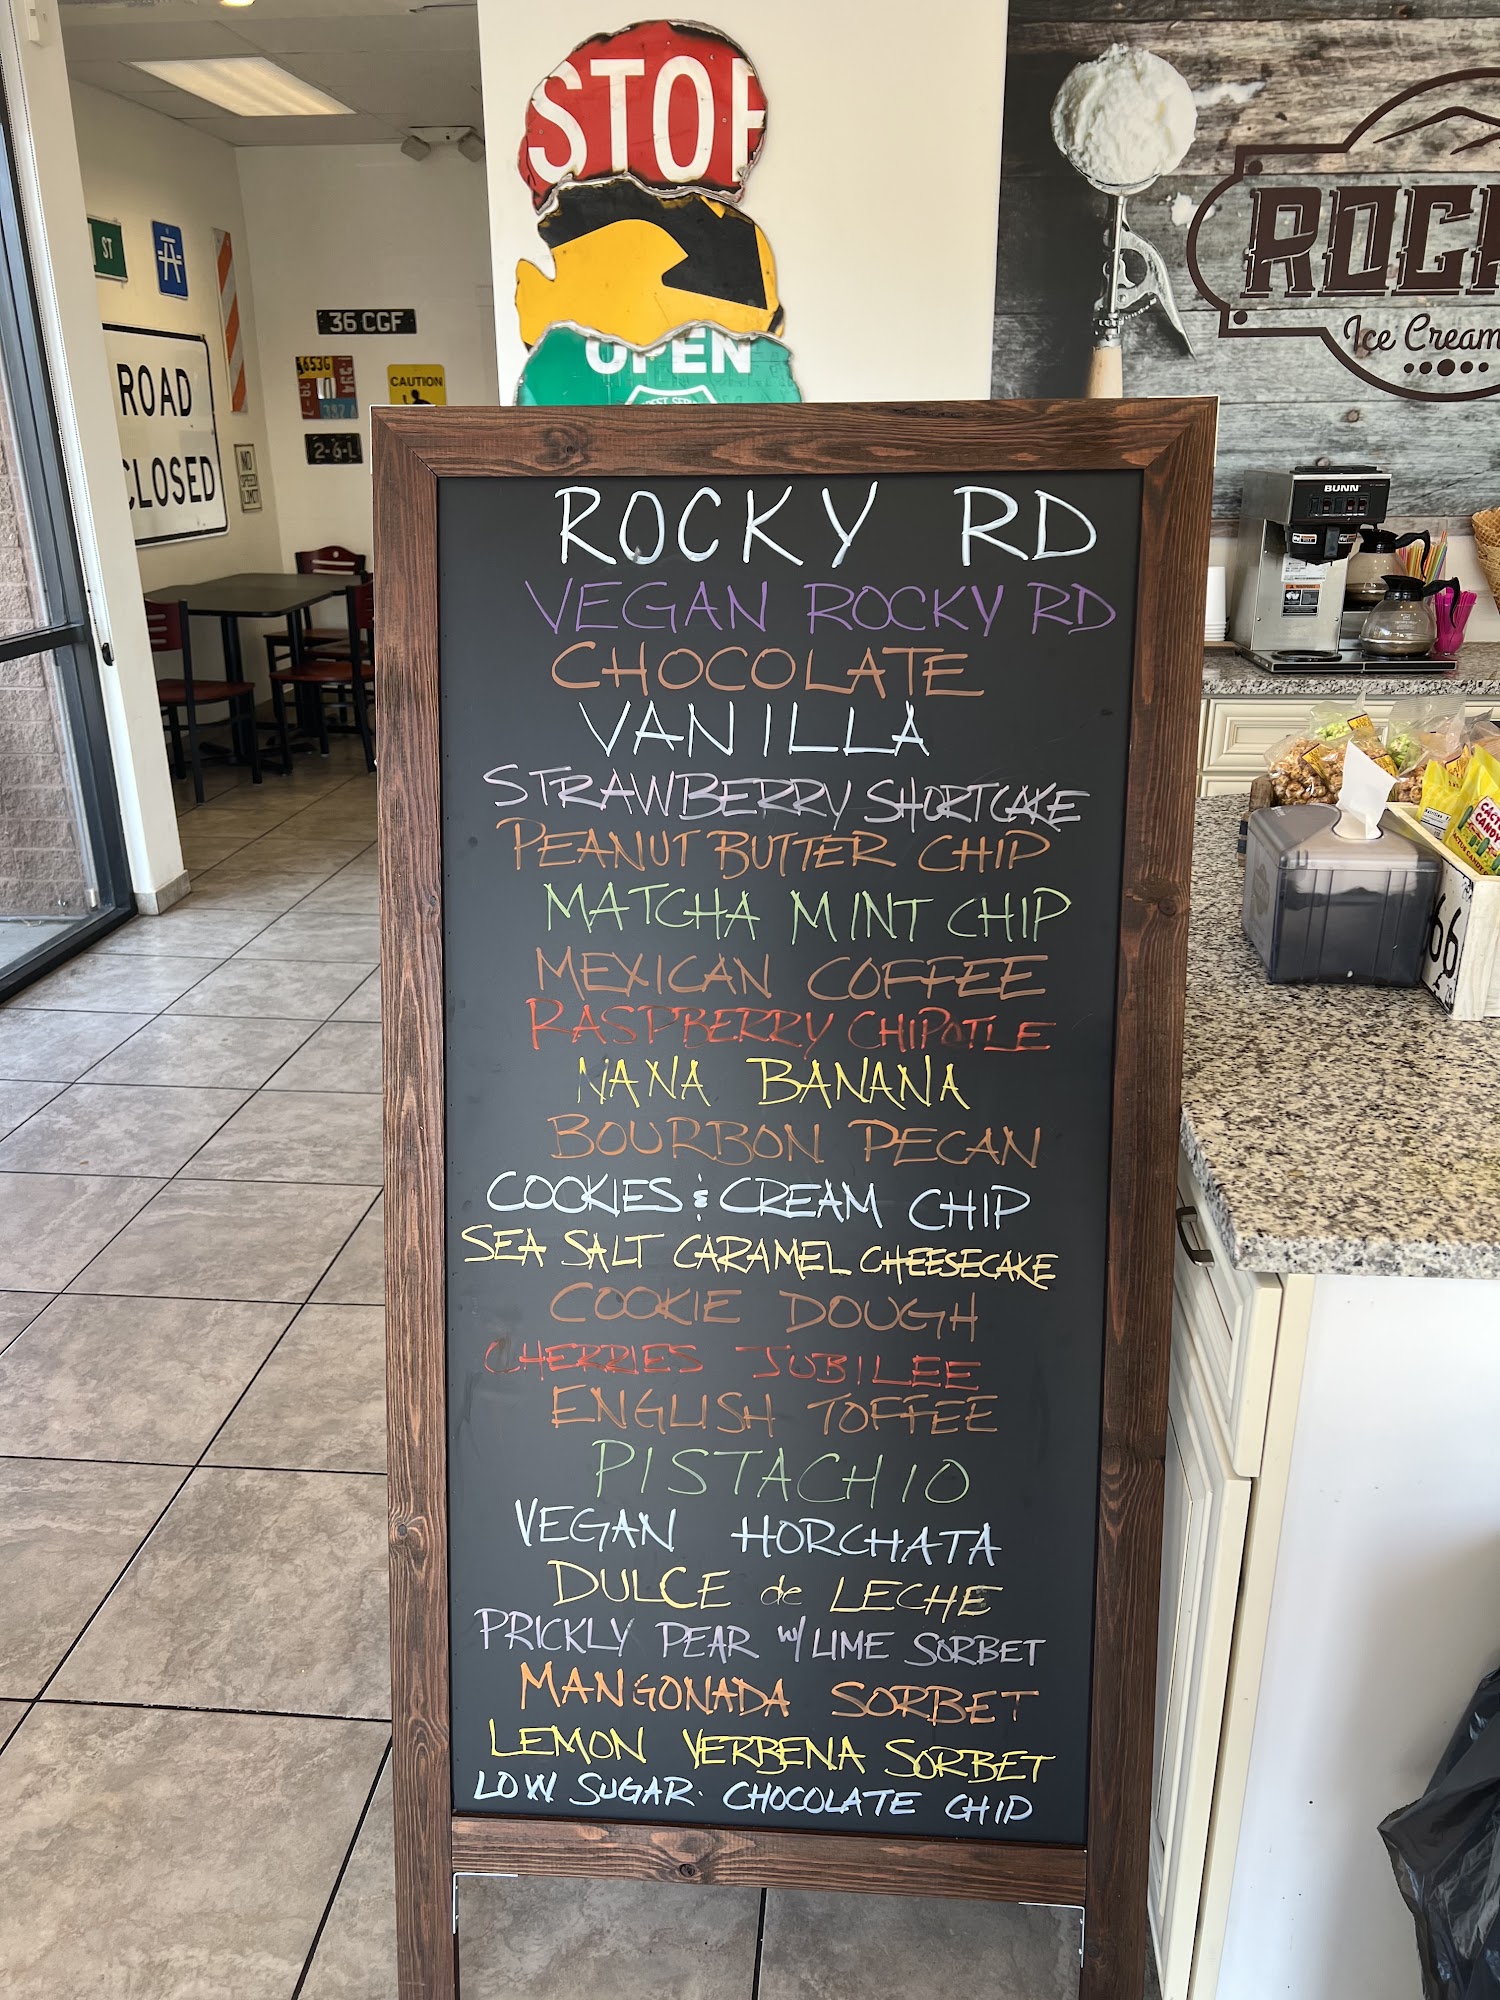 STOP
OPEN
ST
36 CGF
ROAD
CLOSED
CAUTION
2-6-L
NO
SPEED
LIMIT
Ice Cream
BUNN
ROCKY RD
VEGAN ROCKY RD
CHOCOLATE
VANILLA
STRAWBERRY SHORTCAKE
PEANUT BUTTER CHIP
MATCHA MINT CHIP
MEXICAN COFFEE
RASPBERRY CHIPOTLE
NANA BANANA
BOURBON PECAN
COOKIES & CREAM CHIP
SEA SALT CARAMEL CHEESECAKE
COOKIE DOUGH
CHERRIES JUBILEE
ENGLISH TOFFEE
PISTACHIO
VEGAN HORCHATA
DULCE de LECHE
PRICKLY PEAR w/ LIME SORBET
MANGONADA SORBET
LEMON VERBENA SORBET
LOW SUGAR. CHOCOLATE CHIP
CACTUS
CANDY